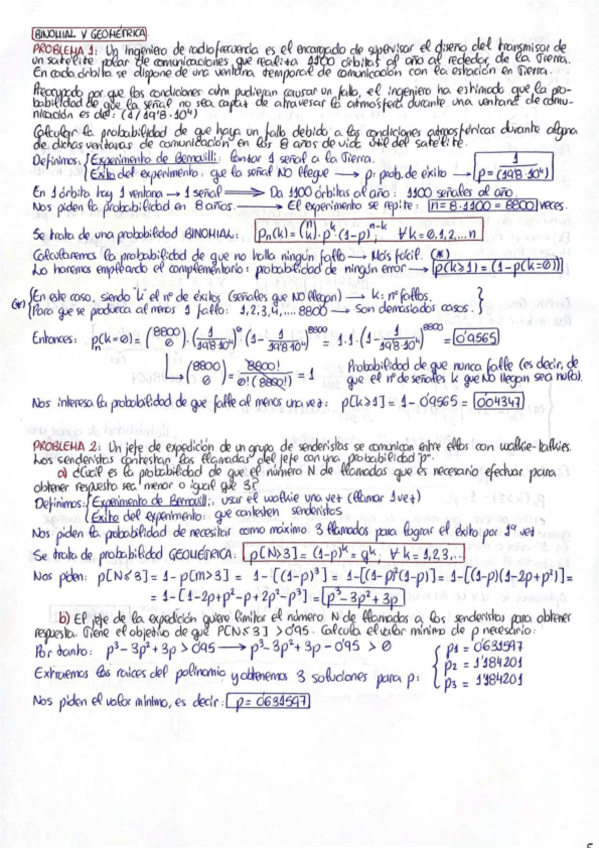 BINOMIAL Y GEOMÉTRICA
PROBLEMA 1: Un ingeniero de radiofrecuencia es el encargado de supervisar el diseño del transmisor de
un satélite polar de comunicaciones que realiza 1100 órbitas al año al rededor de la Tierra.
En cada órbita se dispone de una ventana temporal de comunicación con la estación en Tierra.
Preocupado por que las condiciones atm pudieran causar un fallo, el ingeniero ha estimado que la pro-
babilidad de que la señal no sea capaz de atravesar la atmósfera durante una ventana de comu-
nicación es de: (1/19'8·10⁴)
Calcular la probabilidad de que haya un fallo debido a las condiciones atmosféricas durante alguna
de dichas ventanas de comunicación en los 8 años de vida útil del satélite.
Definimos: { Experimento de Bernouilli: lanzar 1 señal a la Tierra.
Éxito del experimento: que la señal NO llegue → p: prob. de éxito → p = 1/(19'8·10⁴)
En 1 órbita hay 1 ventana → 1 señal ⟹ Da 1100 órbitas al año: 1100 señales al año.
Nos piden la probabilidad en 8 años → El experimento se repite: n = 8·1100 = 8800 veces.
Se trata de una probabilidad BINOMIAL: Pn(k) = (n k)·p^k·(1-p)^(n-k) ∀k=0,1,2,...n
Calcularemos la probabilidad de que no halla ningún fallo → Más fácil. (*)
Lo haremos empleando el complementario: probabilidad de ningún error → p(k≥1) = (1-p(k=0))
(*) { En este caso, siendo "k" el nº de éxitos (señales que NO llegan) → k: nº fallos. }
Para que se produzca al menos 1 fallo: 1,2,3,4,.... 8800 → Son demasiados casos.
Entonces: pn(k=0) = (8800 0)·(1/19'8·10⁴)^0·(1-1/19'8·10⁴)^8800 = 1·1·(1-1/19'8·10⁴)^8800 = 0'9565
(8800 0) = 8800!/0!(8800!) = 1 Probabilidad de que nunca falle (es decir, de
que el nº de señales k que NO llegan sea nulo).
Nos interesa la probabilidad de que falle al menos una vez: p[k≥1] = 1-0'9565 = 0'04347
PROBLEMA 2: Un jefe de expedición de un grupo de senderistas se comunican entre ellos con walkie-talkies.
Los senderistas contestan las llamadas del jefe con una probabilidad "p".
a) ¿Cuál es la probabilidad de que el número N de llamadas que es necesario efectuar para
obtener respuesta sea menor o igual que 3?
Definimos: { Experimento de Bernouilli: usar el walkie una vez (llamar 1 vez)
Éxito del experimento: que contesten senderistas
Nos piden la probabilidad de necesitar como máximo 3 llamadas para lograr el éxito por 1ª vez
Se trata de probabilidad GEOMÉTRICA: p[N>3] = (1-p)^k = q^k. ∀k=1,2,3,..
Nos piden: p[N≤3] = 1-p[m>3] = 1-[(1-p)³] = 1-[(1-p)²(1-p)] = 1-[(1-p)(1-2p+p²)] =
= 1-[1-2p+p²-p+2p²-p³] = p³-3p²+3p
b) El jefe de la expedición quiere limitar el número N de llamadas a los senderistas para obtener
respuesta. Tiene el objetivo de que P[N≤3] > 0'95. Calcula el valor mínimo de p necesario:
Por tanto: p³-3p²+3p > 0'95 → p³-3p²+3p-0'95 > 0 { p1 = 0'631597
Extraemos las raíces del polinomio y obtenemos 3 soluciones para p: p2 = 1'184201
p3 = 1'184201
Nos piden el valor mínimo, es decir: p = 0'631597